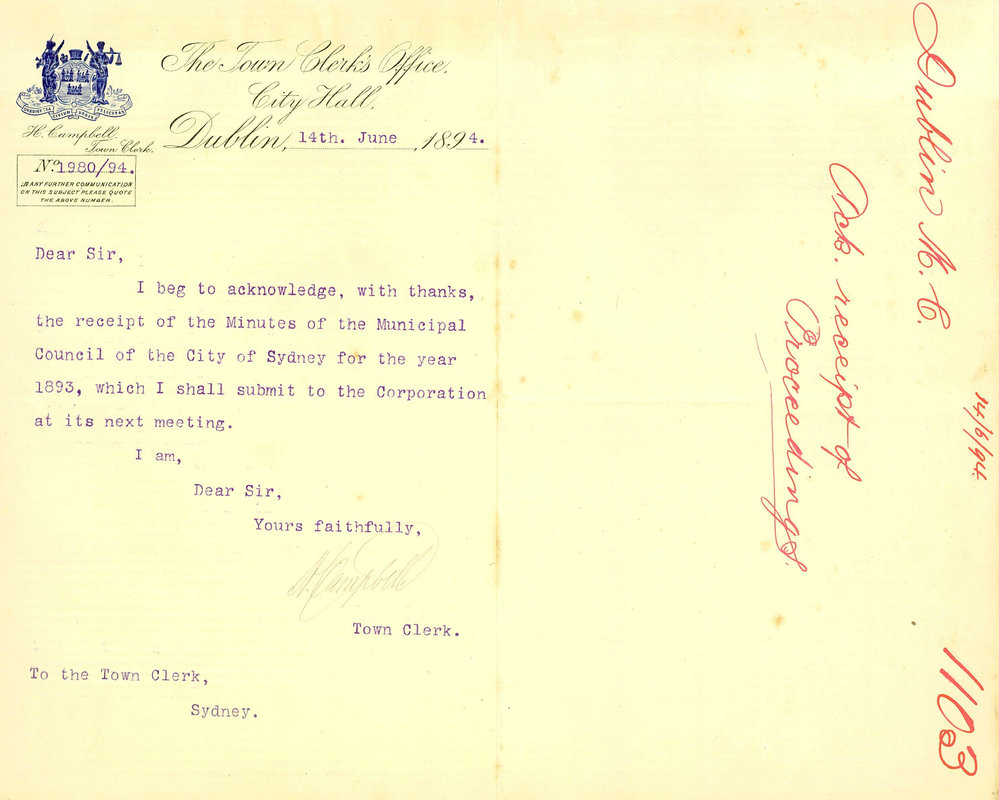 The Town Clerk's Office.
City Hall,
Dublin, 14th. June, 1894.
H. Campbell.
Town Clerk.
No. 1980/94.
IN ANY FURTHER COMMUNICATION
ON THIS SUBJECT PLEASE QUOTE
THE ABOVE NUMBER.
Dear Sir,
I beg to acknowledge, with thanks,
the receipt of the Minutes of the Municipal
Council of the City of Sydney for the year
1893, which I shall submit to the Corporation
at its next meeting.
I am,
Dear Sir,
Yours faithfully,
H. Campbell
Town Clerk.
To the Town Clerk,
Sydney.
Dublin M. C.
Ack. receipt of
Proceedings.
14/6/94.
1103